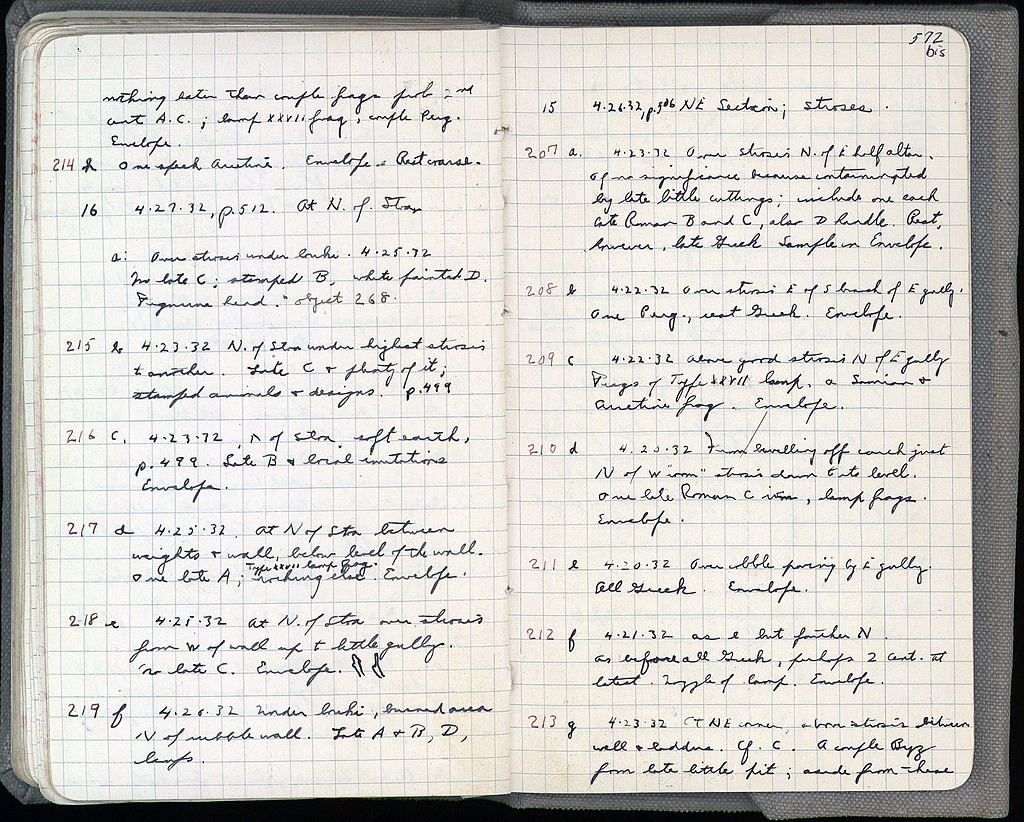 nothing later than couple frags prob 2nd
cent A.C.; lamp XXVII frag, couple Perg.
Envelope.
214 h One speck Arretine. Envelope. Rest coarse.
16 4.27.32, p.512. At N. of Stoa
a: Over strosis under 4.25.32
No late C; stamped B, white painted D.
Figurine head. Object 268.
215 b 4.23.32 N. of Stoa under highest strosis
to another. Late C & plenty of it;
stamped animals & designs. p.499
216 c. 4.23.32 N of Stoa, soft earth,
p.499. Late B & local imitations
Envelope.
217 d 4.25.32. At N of Stoa between
weights & wall, below level of the wall.
Type XXVII lamp frag.
One late A; nothing else. Envelope.
218 e 4.25.32 At N. of Stoa over strosis
from W of wall up to little gully.
No late C. Envelope.
219 f 4.26.32 Under, burned area
N of rubble wall. Late A & B, D,
lamps.
572
bis
15 4.26.32, p.506 NE Section; stroses.
207 a. 4.23.32 Over strosis N. of E half altar.
Of no significance because contaminated
by late little cuttings; include one each
late Roman B and C, also D handle. Rest,
however, late Greek. Sample in Envelope.
208 b 4.22.32 Over strosis E of S branch of E gully.
One Perg., rest Greek. Envelope.
209 c 4.22.32 above good strosis N of E gully
Frags of Type XXVII lamp, a Samian &
Arretine frag. Envelope.
210 d 4.20.32 From levelling off just
N of W "room" strosis down to its level.
One late Roman C, lamp frags.
Envelope.
211 e 4.20.32 Over cobble paving by E gully.
All Greek. Envelope.
212 f 4.21.32 as e but farther N.
As before all Greek, perhaps 2 cent. at
latest. Nozzle of lamp. Envelope.
213 g 4.23.32 At NE corner, above strosis between
wall &. Cf. C. A couple Byz
from late little pit; aside from these